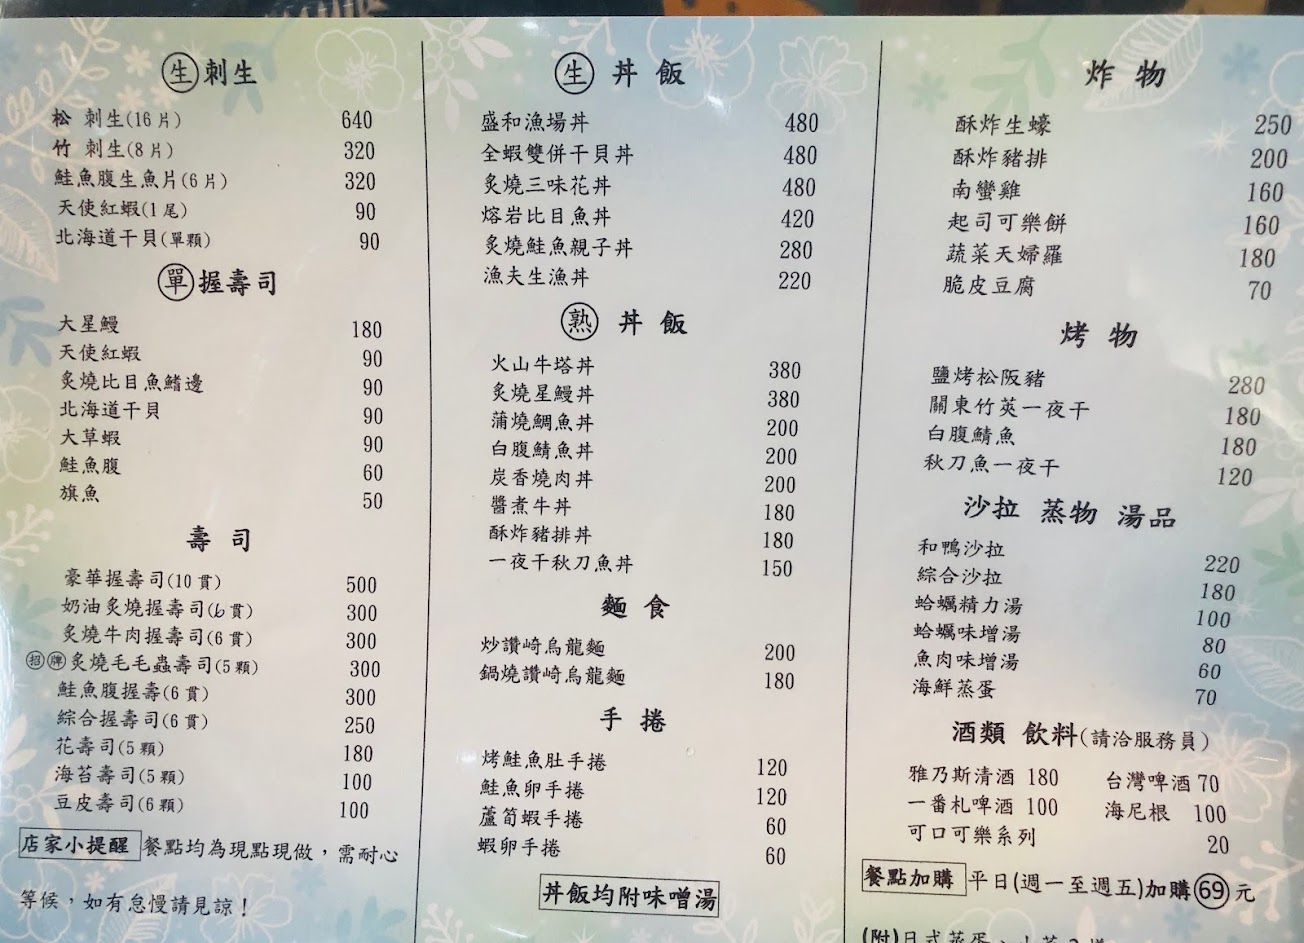 生 刺生
松 刺生(16片) 640
竹 刺生(8片) 320
鮭魚腹生魚片(6片) 320
天使紅蝦(1尾) 90
北海道干貝(單顆) 90
單 握壽司
大星鰻 180
天使紅蝦 90
炙燒比目魚鰭邊 90
北海道干貝 90
大草蝦 90
鮭魚腹 60
旗魚 50
壽司
豪華握壽司(10貫) 500
奶油炙燒握壽司(6貫) 300
炙燒牛肉握壽司(6貫) 300
招牌 炙燒毛毛蟲壽司(5顆) 300
鮭魚腹握壽(6貫) 300
綜合握壽司(6貫) 250
花壽司(5顆) 180
海苔壽司(5顆) 100
豆皮壽司(6顆) 100
店家小提醒 餐點均為現點現做，需耐心
等候，如有怠慢請見諒！
生 丼飯
盛和漁場丼 480
全蝦雙併干貝丼 480
炙燒三味花丼 480
熔岩比目魚丼 420
炙燒鮭魚親子丼 280
漁夫生漁丼 220
熟 丼飯
火山牛塔丼 380
炙燒星鰻丼 380
蒲燒鯛魚丼 200
白腹鯖魚丼 200
炭香燒肉丼 200
醬煮牛丼 180
酥炸豬排丼 180
一夜干秋刀魚丼 150
麵食
炒讚崎烏龍麵 200
鍋燒讚崎烏龍麵 180
手捲
烤鮭魚肚手捲 120
鮭魚卵手捲 120
蘆筍蝦手捲 60
蝦卵手捲 60
丼飯均附味噌湯
炸物
酥炸生蠔 250
酥炸豬排 200
南蠻雞 160
起司可樂餅 160
蔬菜天婦羅 180
脆皮豆腐 70
烤物
鹽烤松阪豬 280
關東竹莢一夜干 180
白腹鯖魚 180
秋刀魚一夜干 120
沙拉 蒸物 湯品
和鴨沙拉 220
綜合沙拉 180
蛤蠣精力湯 100
蛤蠣味增湯 80
魚肉味增湯 60
海鮮蒸蛋 70
酒類 飲料(請洽服務員)
雅乃斯清酒 180 台灣啤酒 70
一番札啤酒 100 海尼根 100
可口可樂系列 20
餐點加購 平日(週一至週五)加購69元
(附)日式蒸蛋、小菜